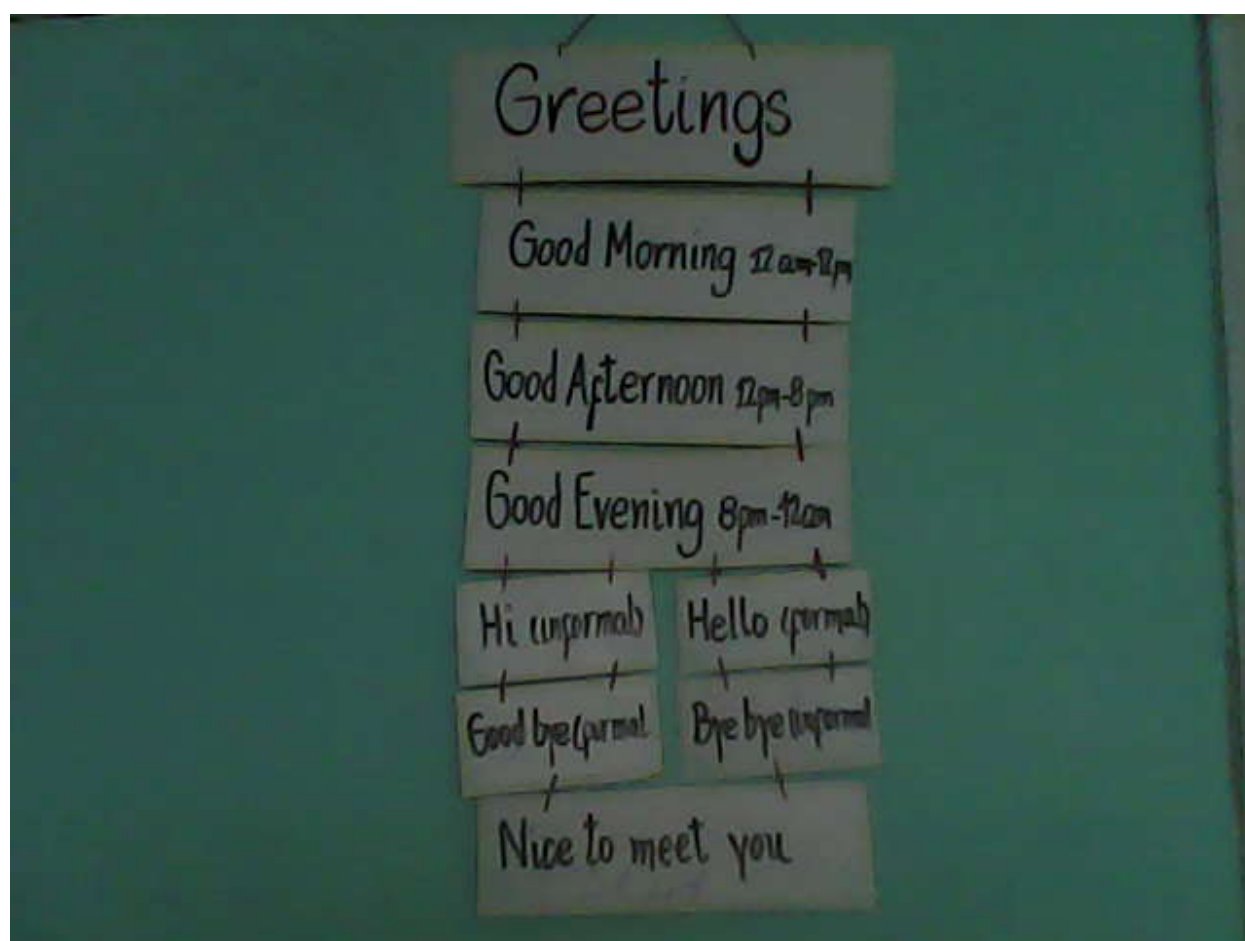 Greetings
Good Morning 12am-12pm
Good Afternoon 12pm-8pm
Good Evening 8pm-12am
Hi (informal)
Hello (formal)
Good bye (formal
Bye bye (informal
Nice to meet you